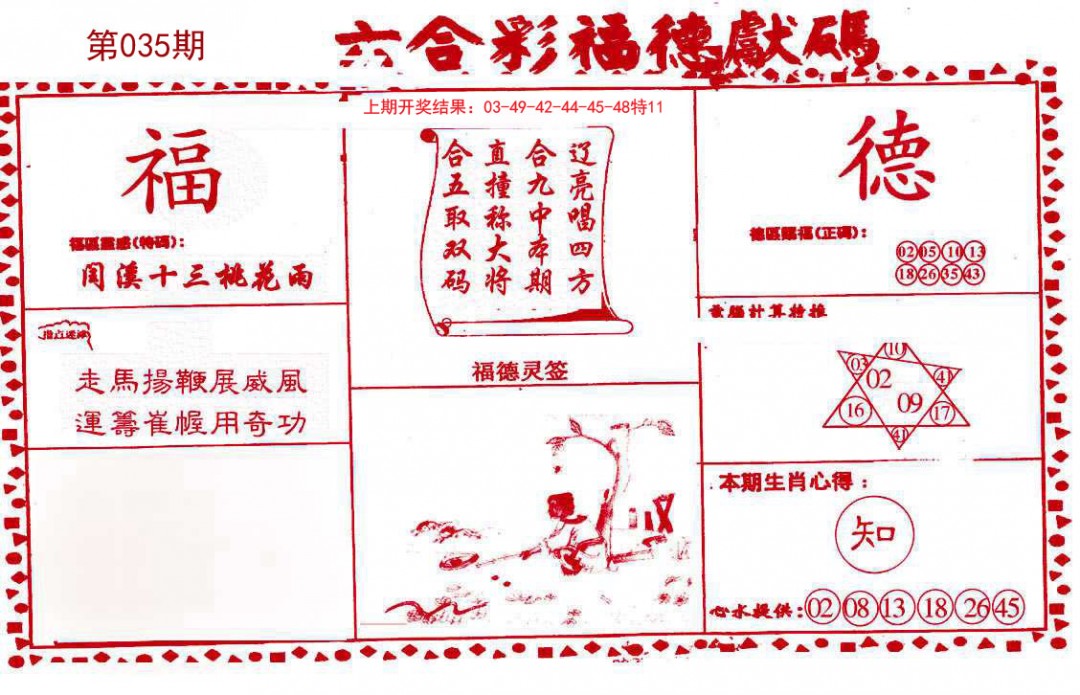 第035期
六合彩福德獻碼
上期开奖结果：03-49-42-44-45-48特11
福
福區靈感(特碼)：
閃溪十三桃花雨
走馬揚鞭展威風
運籌崔幄用奇功
辽亮唱四方
合九中本期
直撞称大将
合五取双码
福德灵签
德
德區賜福(正碼)：
02 05 10 13
18 26 35 43
電腦計算特推
10
03 02 41
16 09 17
41
本期生肖心得：
知
心水提供：02 08 13 18 26 45